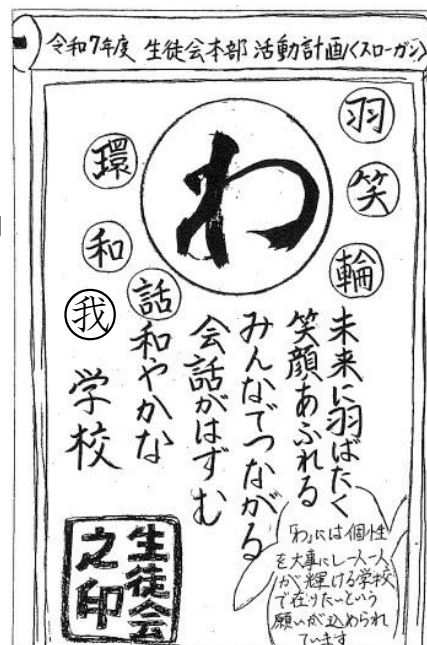 令和7年度 生徒会本部 活動計画〈スローガン〉
羽
笑
輪
わ
環
和
話
我
未来に羽ばたく
笑顔あふれる
みんなでつながる
会話がはずむ
和やかな
学校
「わ」には個性
を大事にし一人一人
が輝ける学校
で在りたいという
願いが込められ
ています
生徒会
之印